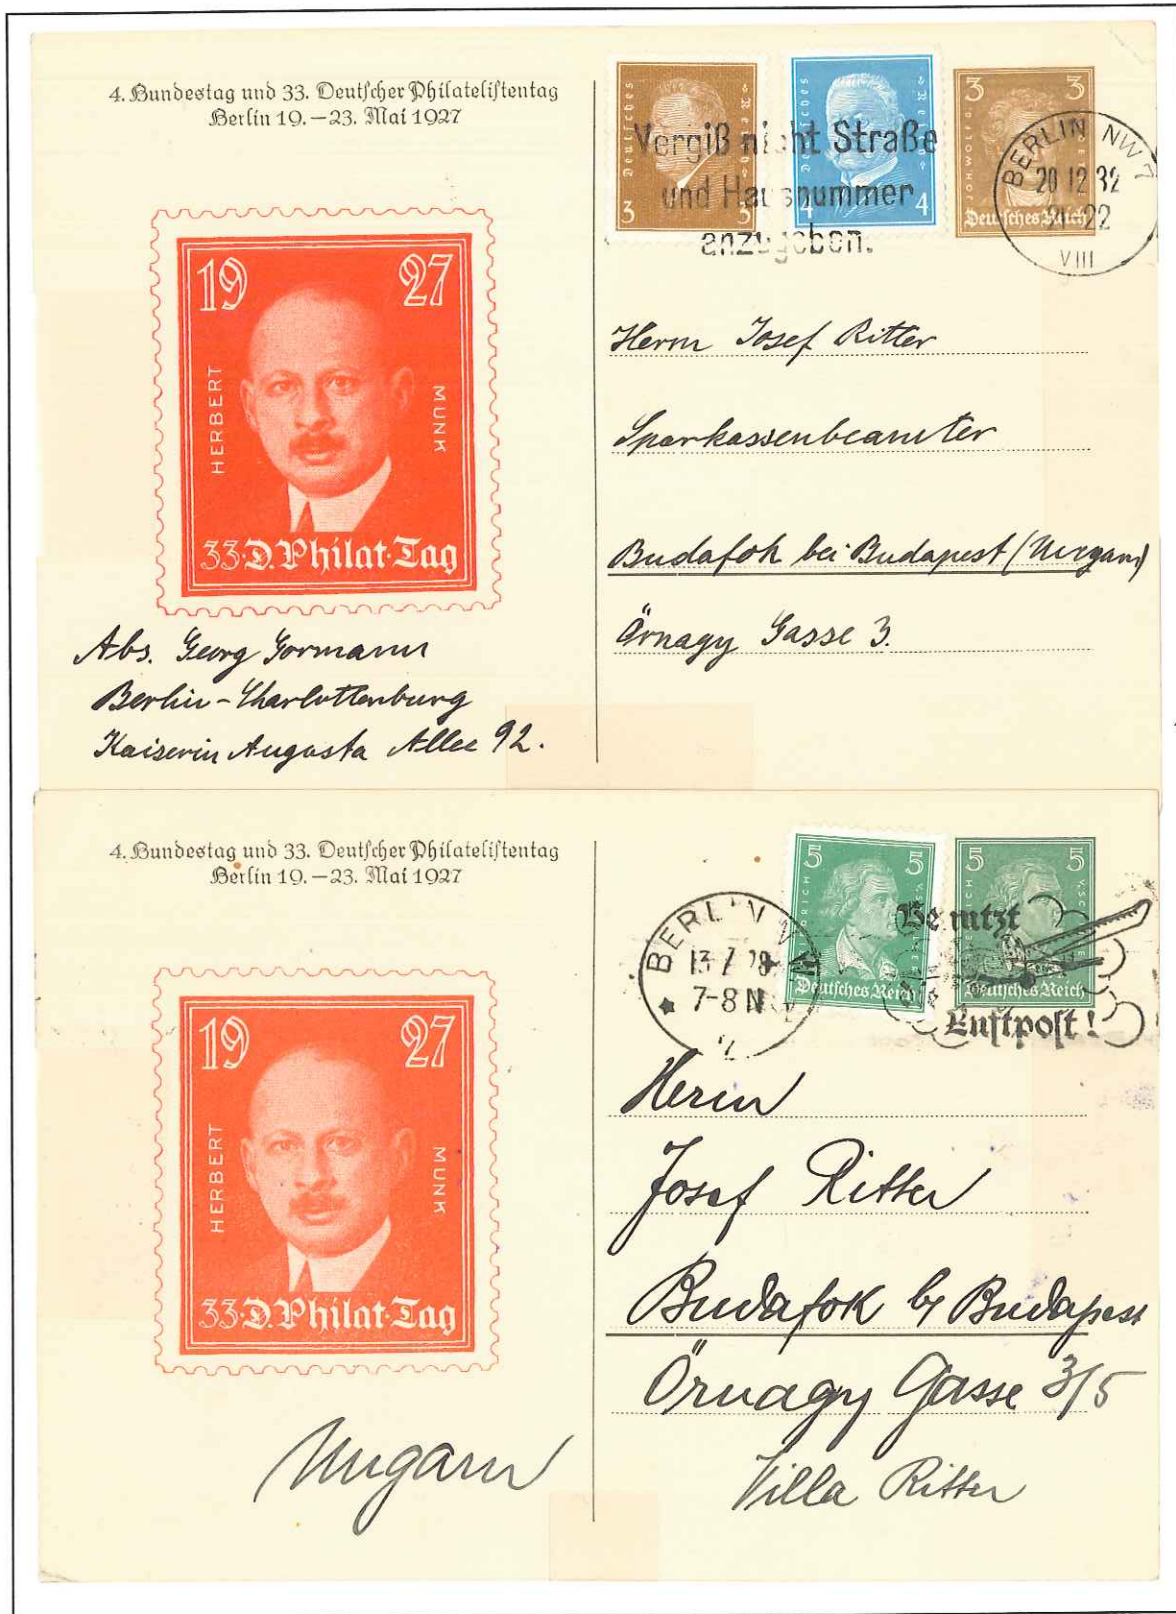 4. Bundestag und 33. Deutscher Philatelistentag
Berlin 19.–23. Mai 1927
19 27
HERBERT
MUNK
33·D.Philat·Tag
Abs. Georg Gormann
Berlin-Charlottenburg
Kaiserin Augusta Allee 92.
Deutsches Reich
3 3
Deutsches Reich
4 4
3 3
JOH. WOLFG.
Deutsches Reich
Vergiß nicht Straße
und Hausnummer
anzugeben.
BERLIN NW 7
20 12 32
21-22
VIII
Herrn Josef Ritter
Sparkassenbeamter
Budafok bei Budapest (Ungarn)
Örnagy Gasse 3.
4. Bundestag und 33. Deutscher Philatelistentag
Berlin 19.–23. Mai 1927
19 27
HERBERT
MUNK
33·D.Philat·Tag
Ungarn
BERLIN
7-8 N
5 5
Deutsches Reich
5 5
Deutsches Reich
Benutzt
Luftpost!
Herrn
Josef Ritter
Budafok b/ Budapest
Örnagy Gasse 3/5
Villa Ritter